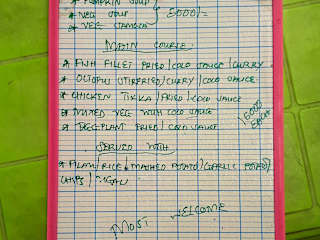 * PUMPKIN SOUP
* VEG SOUP } 5000/=
* VEG SAMOSA
MAIN COURSE
* FISH FILLET FRIED/COLD SAUCE/CURRY
* OCTOPUS STIRFRIED/CURRY/COLD SAUCE
* CHICKEN TIKKA/FRIED/COLD SAUCE
* MIXED VEG WITH COLD SAUCE
* EGGPLANT FRIED/COLD SAUCE
15000 EACH
SERVED WITH
* PILAU/RICE/MASHED POTATO/GARLIC POTATO/
CHIPS/UGALI
MOST WELCOME